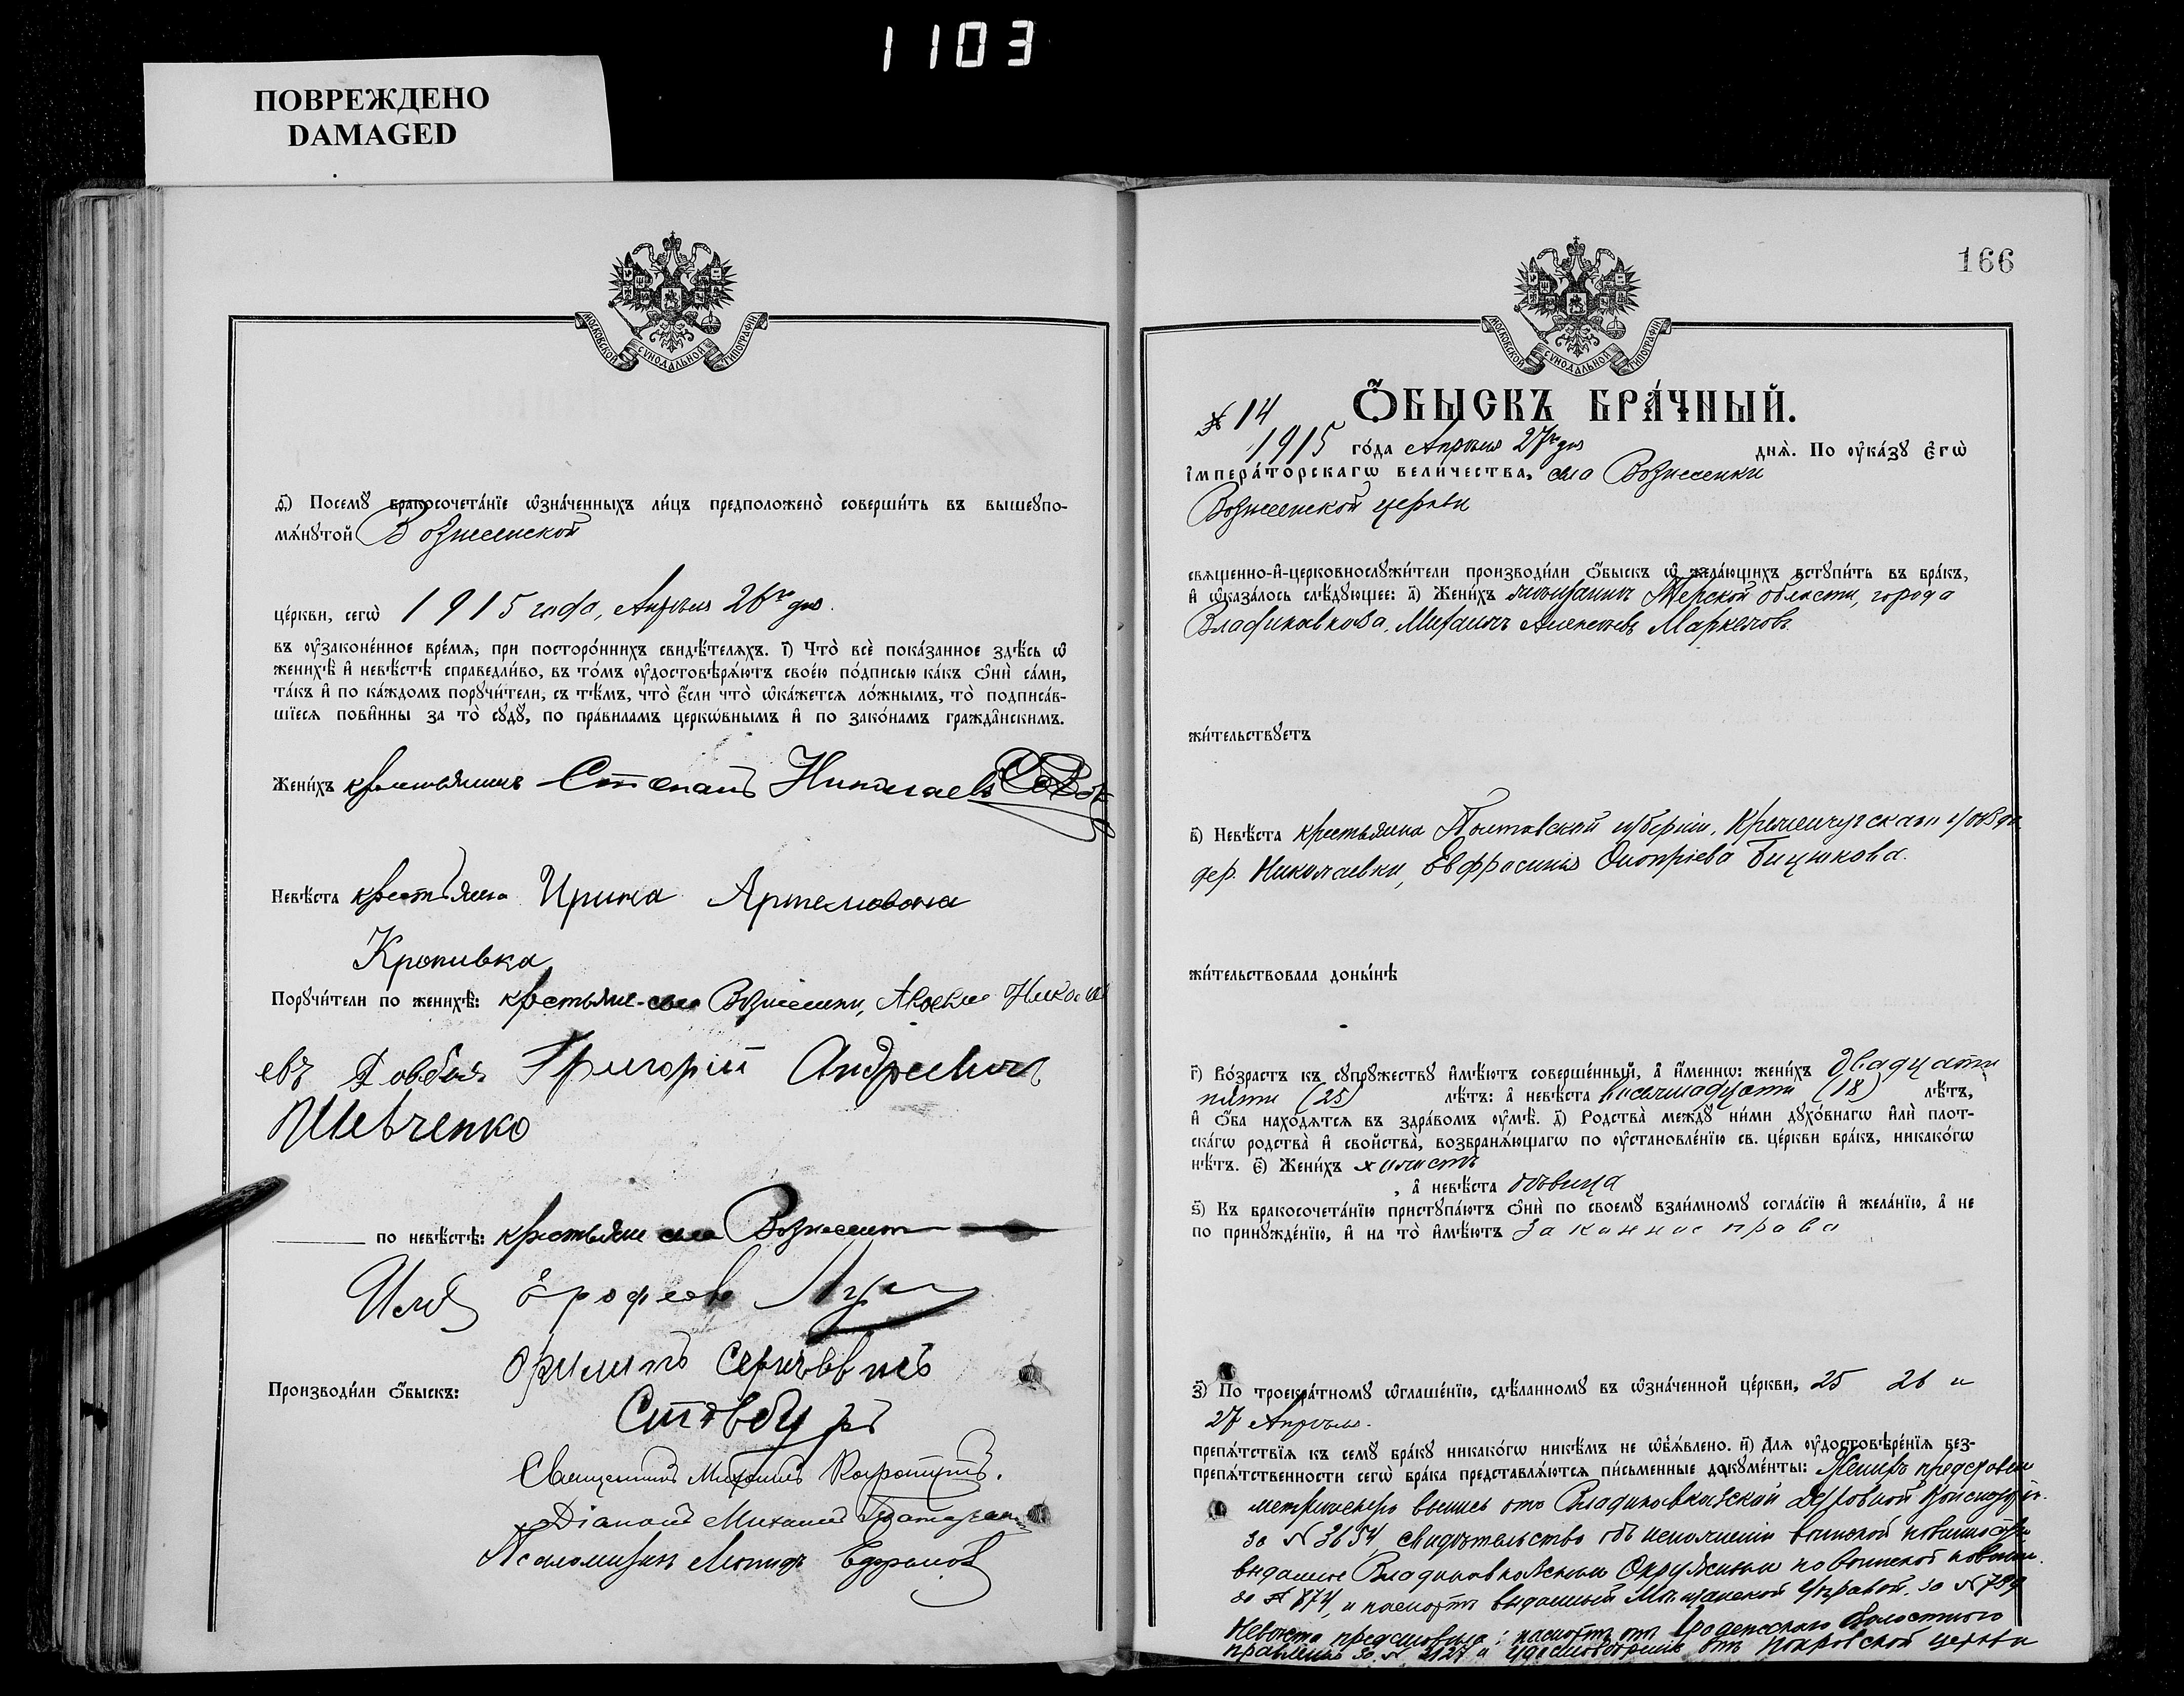 1103
ПОВРЕЖДЕНО
DAMAGED
МОСКОВСКОЙ СѴНОДАЛЬНОЙ ТИПОГРАФІИ
д҃) Посемꙋ̀ бракосочета́нїе ѡ҆зна́ченныхъ ли́цъ предположено̀ соверши́ть въ вышеꙋпо-
мѧ́нꙋтой Вознесенской
це́ркви, сегѡ̀ 1915 года, Апрѣля 26го дня.
въ ᲂу҆зако́ненное вре́мѧ, при посторо́ннихъ свидѣ́телѧхъ. і҃) Что̀ всѐ пока́занное здѣ́сь ѡ҆
женихѣ̀ и҆ невѣ́стѣ справедли́во, въ то́мъ ᲂу҆достовѣрѧ́ютъ свое́ю по́дписью ка́къ ѻ҆нѝ са́ми,
та́къ и҆ по ка́ждомъ порꙋчи́тели, съ тѣ́мъ, что̀ е҆́сли что̀ ѡ҆ка́жетсѧ ло́жнымъ, то̀ подписа́в-
шїесѧ пови́нны за то̀ сꙋдꙋ̀, по пра́виламъ церкѡ́внымъ и҆ по зако́намъ гражда́нскимъ.
Жени́хъ крестьянинъ Степанъ Николаевъ
Невѣ́ста крестьянка Ирина Артемовна
Кропивка
Порꙋчи́тели по женихѣ̀: крестьяне села Вознесенки, Никола
евъ Довбня Григорій Андреевичъ
Шевченко
по невѣ́стѣ: крестьяне села Вознесенки
Ерофеевъ
Сергѣевичъ
Производи́ли ѻ҆́быскъ:
Стовбуръ
Священникъ Михаилъ
Діаконъ Михаилъ
Псаломщикъ Леонидъ Ефремовъ
166
МОСКОВСКОЙ СѴНОДАЛЬНОЙ ТИПОГРАФІИ
№ 14
Ѻ҆́БЫСКЪ БРА́ЧНЫЙ.
1915 го́да Апрѣля 27го дня днѧ̀. По ᲂу҆ка́зꙋ Е҆гѡ̀
і҆мпера́торскагѡ вели́чества, села Вознесенки
Вознесенской церкви
свѧще́нно-и҆-церковнослꙋжи́тели производи́ли ѻ҆́быскъ ѡ҆ жела́ющихъ встꙋпи́ть въ бра́къ,
и҆ ѡ҆каза́лось слѣ́дꙋющее: а҃) Жени́хъ мѣщанинъ Терской области, города
Владикавказа, Михаилъ Алексѣевъ Маркеловъ.
жи́тельствꙋетъ
в҃) Невѣ́ста крестьянка Полтавской губерніи, Кременчугскаго уѣзда
дер. Николаевки, Евфросинія Онопріева Бицюкова.
жи́тельствовала доны́нѣ
г҃) Во́зрастъ къ сꙋпрꙋ́жествꙋ и҆мѣ́ютъ соверше́нный, а҆ и҆́меннѡ: жени́хъ двадцати
пяти (25) лѣ́тъ: а҆ невѣ́ста восемнадцати (18) лѣ́тъ,
и҆ ѻ҆́ба нахо́дѧтсѧ въ здра́вомъ ᲂу҆мѣ̀. д҃) Родства̀ междꙋ̀ ни́ми дꙋхо́внагѡ и҆лѝ плот-
ска́гѡ родства̀ и҆ сво́йства̀, возбранѧ́ющагѡ по ᲂу҆становле́нїю св. це́ркви бра́къ, никако́гѡ
нѣ́тъ. є҃) Жени́хъ холостъ
, а҆ невѣ́ста дѣвица
ѕ҃) Къ бракосочета́нїю пристꙋпа́ютъ ѻ҆нѝ по своемꙋ̀ взаи́мномꙋ согла́сїю и҆ жела́нїю, а҆ не
по принꙋжде́нїю, и҆ на то̀ и҆мѣ́ютъ законное право
з҃) По троекра́тномꙋ ѡ҆глаше́нїю, сдѣ́ланномꙋ въ ѡ҆зна́ченной це́ркви, 25 26 и
27 Апрѣля.
препѧ́тствїѧ къ семꙋ̀ бра́кꙋ никако́гѡ никѣ́мъ не ѡ҆б̾ѧ́влено. и҃) Длѧ ᲂу҆достовѣре́нїѧ без-
препѧ́тственности сегѡ̀ бра́ка представлѧ́ютсѧ пи́сьменные докꙋме́нты: Женихъ представилъ
метрическую выпись отъ Владикавказской Духовной Консисторіи
за № 3654, свидѣтельство объ исполненіи воинской повинности
выданное Владикавказскимъ Окружнымъ по воинской повин.
за № 874, и паспортъ выданный Мѣщанской Управой. за № 799
Невѣста представила: паспортъ отъ волостного
правленія за № 2127 и удостовѣреніе отъ Покровской церкви